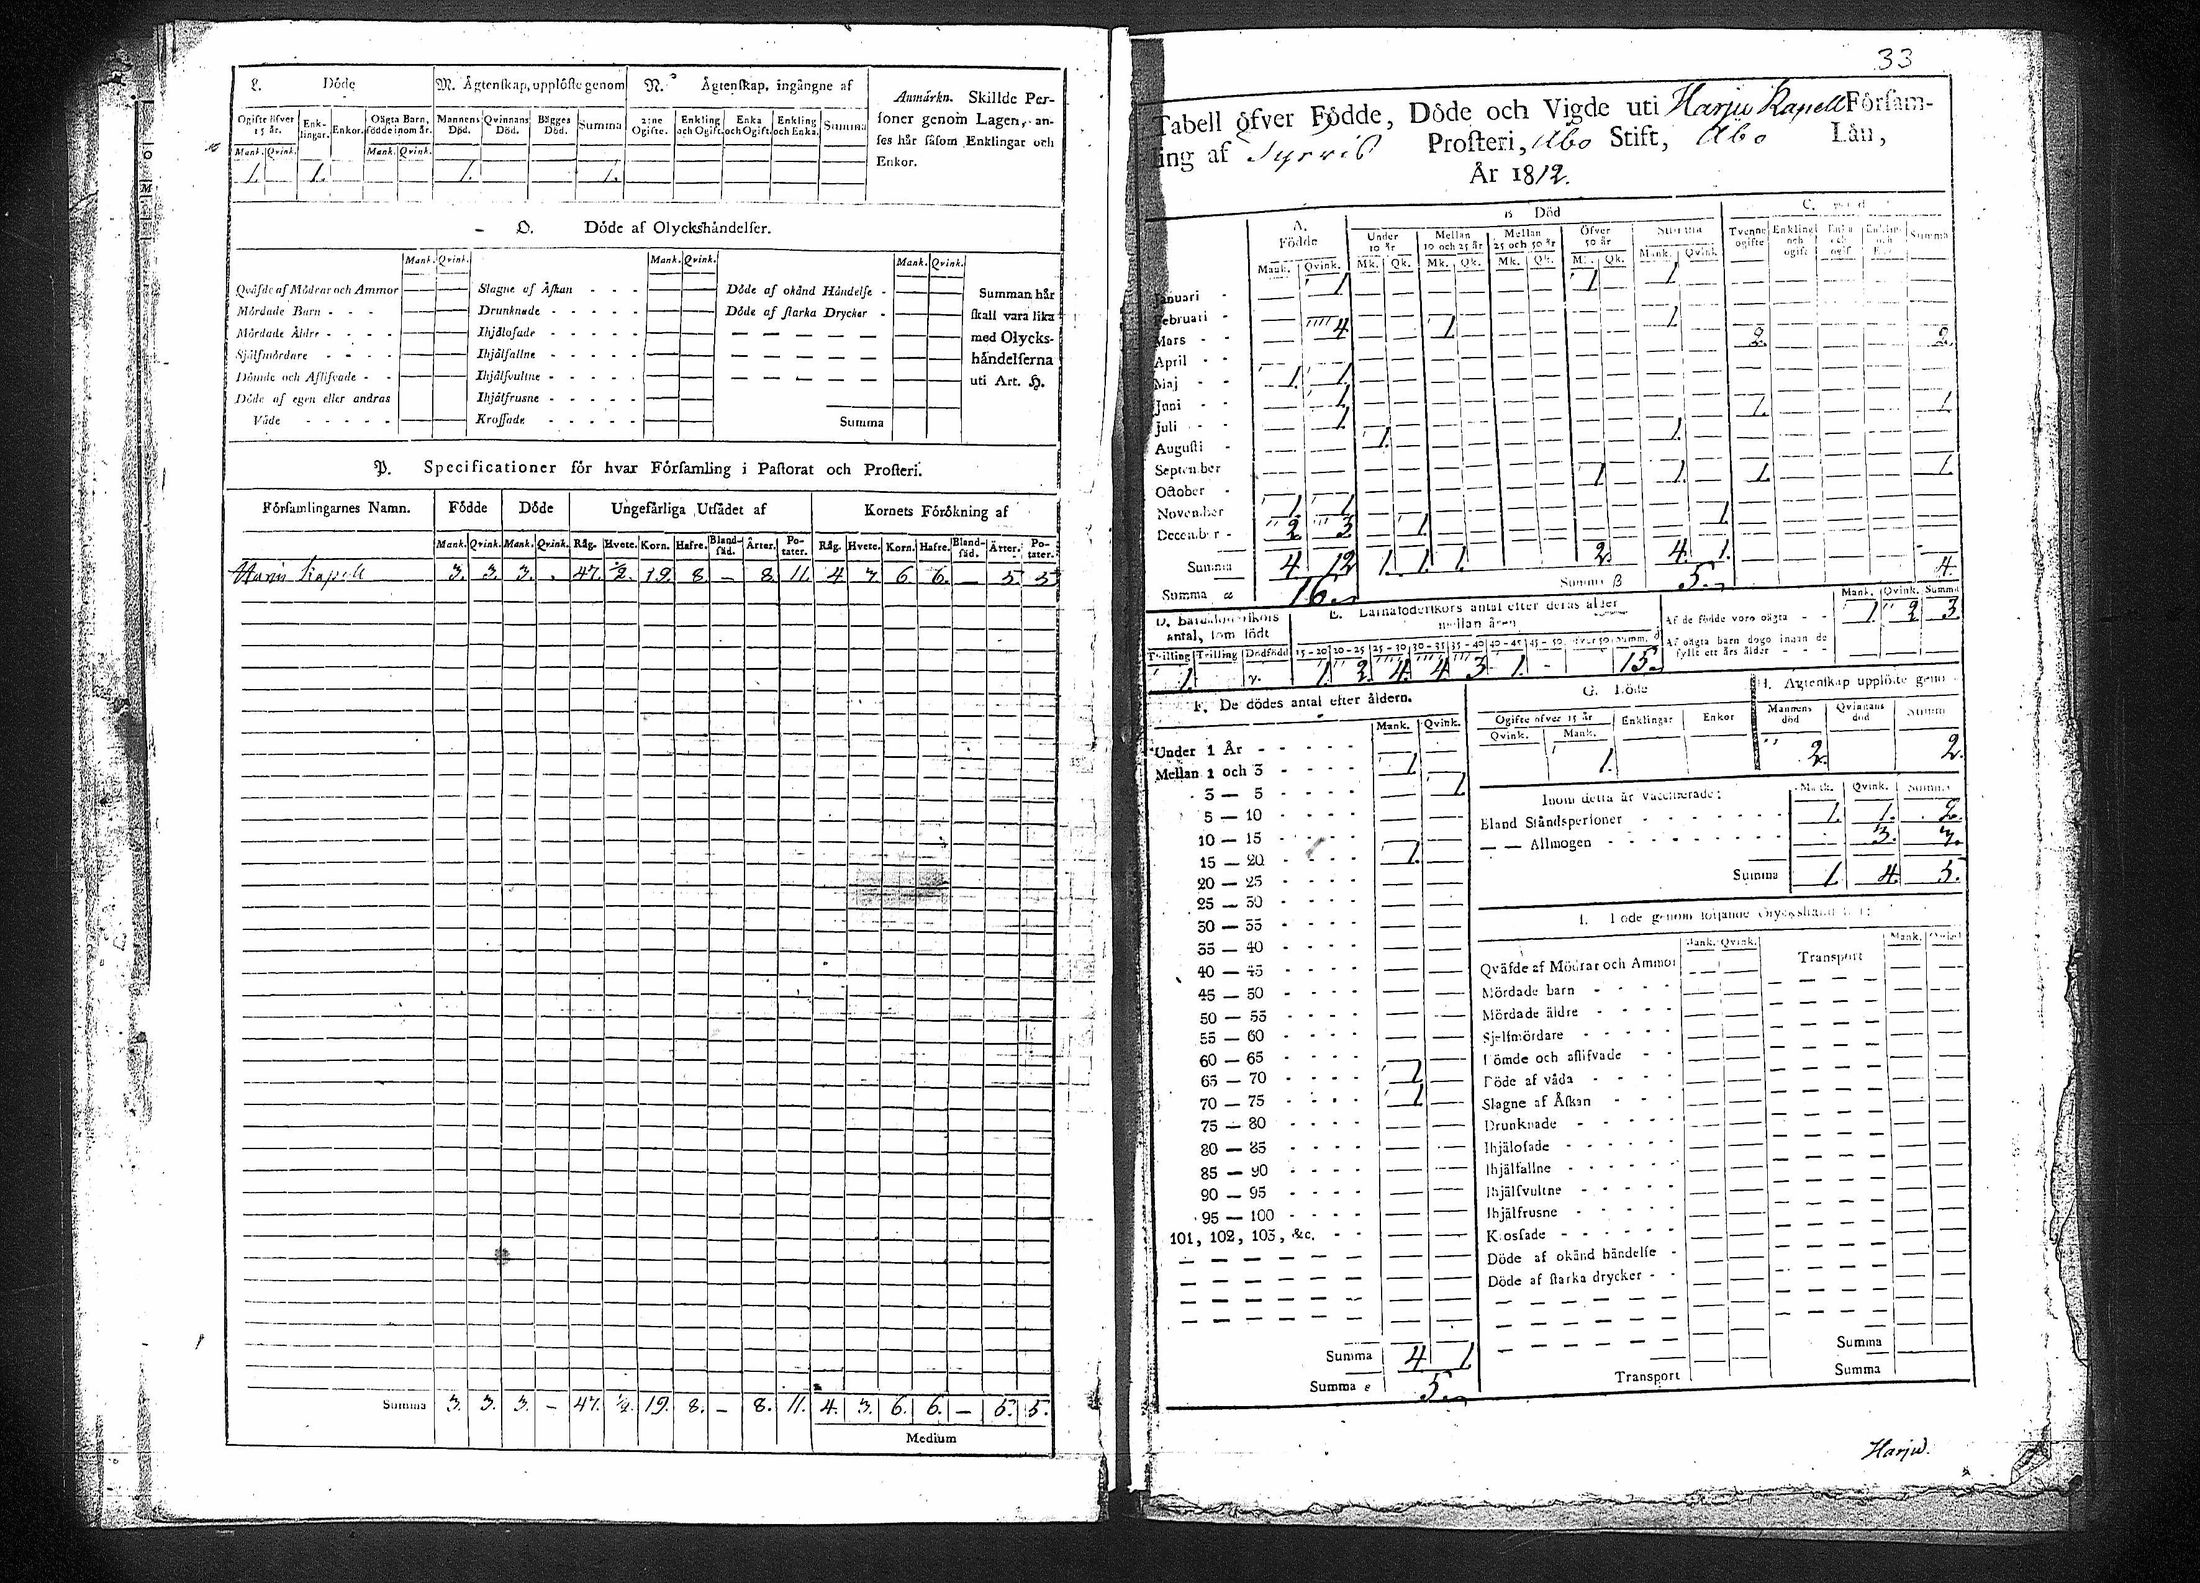 L. Döde
M. Ägtenskap, upplöste genom
N. Ägtenskap, ingångne af
Anmärkn. Skillde Per-
soner genom Lagen, an-
ses här såsom Enklingar och
Enkor.
Ogifte öfver 15 år. Enk-lingar. Enkor. Oägta Barn, födde inom år. Mannens Död. Qvinnans Död. Bägges Död. Summa 2:ne Ogifte. Enkling och Ogift. Enka och Ogift. Enkling och Enka. Summa
Mank. Qvink. Mank. Qvink.
1. 1. 1. 1.
O. Döde af Olyckshändelser.
Mank. Qvink. Mank. Qvink. Mank. Qvink.
Qväfde af Mödrar och Ammor Slagne af Åskan - - - Döde af okänd Händelse - Summan här
Mördade Barn - - - Drunknade - - - - - Döde af starka Drycker - skall vara lika
Mördade Äldre - - - - Ihjälosade - - - - - med Olycks-
Självmördare - - - - Ihjälfallne - - - - - händelserna
Dömde och Aflifvade - - Ihjälfvultne - - - - - uti Art. H.
Döde af egen eller andras Ihjälfrusne - - - - -
Våde - - - - - Krossade - - - - - Summa
P. Specificationer för hvar Församling i Pastorat och Prosteri.
Församlingarnes Namn. Födde Döde Ungefärliga Utsädet af Kornets Förökning af
Mank. Qvink. Mank. Qvink. Råg. Hvete. Korn. Hafre. Bland-säd. Ärter. Po-tater. Råg. Hvete. Korn. Hafre. Bland-säd. Ärter. Po-tater.
Harju Kapell 3. 3. 3. . 47. ½. 19. 8. — 8. 11. 4 3. 6. 6. — 5. 5
Summa 3. 3. 3. — 47. ½. 19. 8. — 8. 11. 4. 3. 6. 6. — 5. 5.
Medium
33
Tabell öfver Födde, Döde och Vigde uti Harju Kapell Församling af
Prosteri, Åbo Stift, Åbo Län,
År 1812.
A. Födde B. Död C.
Under 10 år Mellan 10 och 25 år Mellan 25 och 50 år Öfver 50 år Summa Tvenne ogifte Enkling och ogift Summa
Mank. Qvink. Mk. Qk. Mk. Qk. Mk. Qk. Mk. Qk. Mank. Qvink.
Januari - 1 1 1
Februari - 1.
Mars - - 4 1 2. 2.
April - -
Maj - - 1. 1.
Juni - - 1 1. 1
Juli - - 1.
Augusti - 1. 1.
September 1 1. 1. 1.
October -
November 1. 1
December - 2 3 1. 1
Summa 4. 12 1. 1. 1. 2. 4. 1. 4.
Summa α 16. Summa β 5.
E. Barnaföderskors antal efter deras ålder
mellan åren
antal, som födt
Tvilling Trilling Dödfödd 15-20 20-25 25-30 30-35 35-40 40-45 45-50 öfver 50 Summ.
1. 1. 2. 4. 4. 3. 1. - 15.
Mank. Qvink. Summa
Af de födde voro oägta - - 1. 2 3.
Af oägta barn dogo innan de
fyllt ett års ålder - - -
F. De dödes antal efter åldern.
Mank. Qvink.
Under 1 År - - - - -
Mellan 1 och 3 - - - - 1.
3 — 5 - - - - 1
5 — 10 - - - -
10 — 15 - - - -
15 — 20 - - - - 1.
20 — 25 - - - -
25 — 30 - - - -
30 — 35 - - - -
35 — 40 - - - -
40 — 45 - - - -
45 — 50 - - - -
50 — 55 - - - -
55 — 60 - - - -
60 — 65 - - - -
65 — 70 - - - - 1
70 — 75 - - - - 1
75 — 80 - - - -
80 — 85 - - - -
85 — 90 - - - -
90 — 95 - - - -
95 — 100 - - - -
101, 102, 103, &c. - -
Summa 4 1.
Summa ε 5.
G. Döde
Ogifte öfver 15 år Enklingar Enkor
Qvink. Mank.
1.
H. Ägtenskap upplöste genom
Mannens död Qvinnans död Summa
2. 2.
Inom detta år vaccinerade: Mank. Qvink. Summa
Bland Ståndspersoner - - - - - - - 1. 1. 2.
— — Allmogen - - - - - - - - 3. 3.
Summa 1. 4. 5.
I. Döde genom följande Olyckshändelser:
Mank. Qvink. Mank. Qvink
Qväfde af Mödrar och Ammor Transport
Mördade barn - - - -
Mördade äldre - - - -
Sjelfmördare - - - -
Dömde och aflifvade - -
Döde af våda - - - -
Slagne af Åskan - - -
Drunknade - - - - -
Ihjälosade - - - - -
Ihjälfallne - - - - -
Ihjälfvultne - - - - -
Ihjälfrusne - - - - -
Krossade - - - - -
Döde af okänd händelse -
Döde af starka drycker - -
Summa
Transport Summa
Harju.